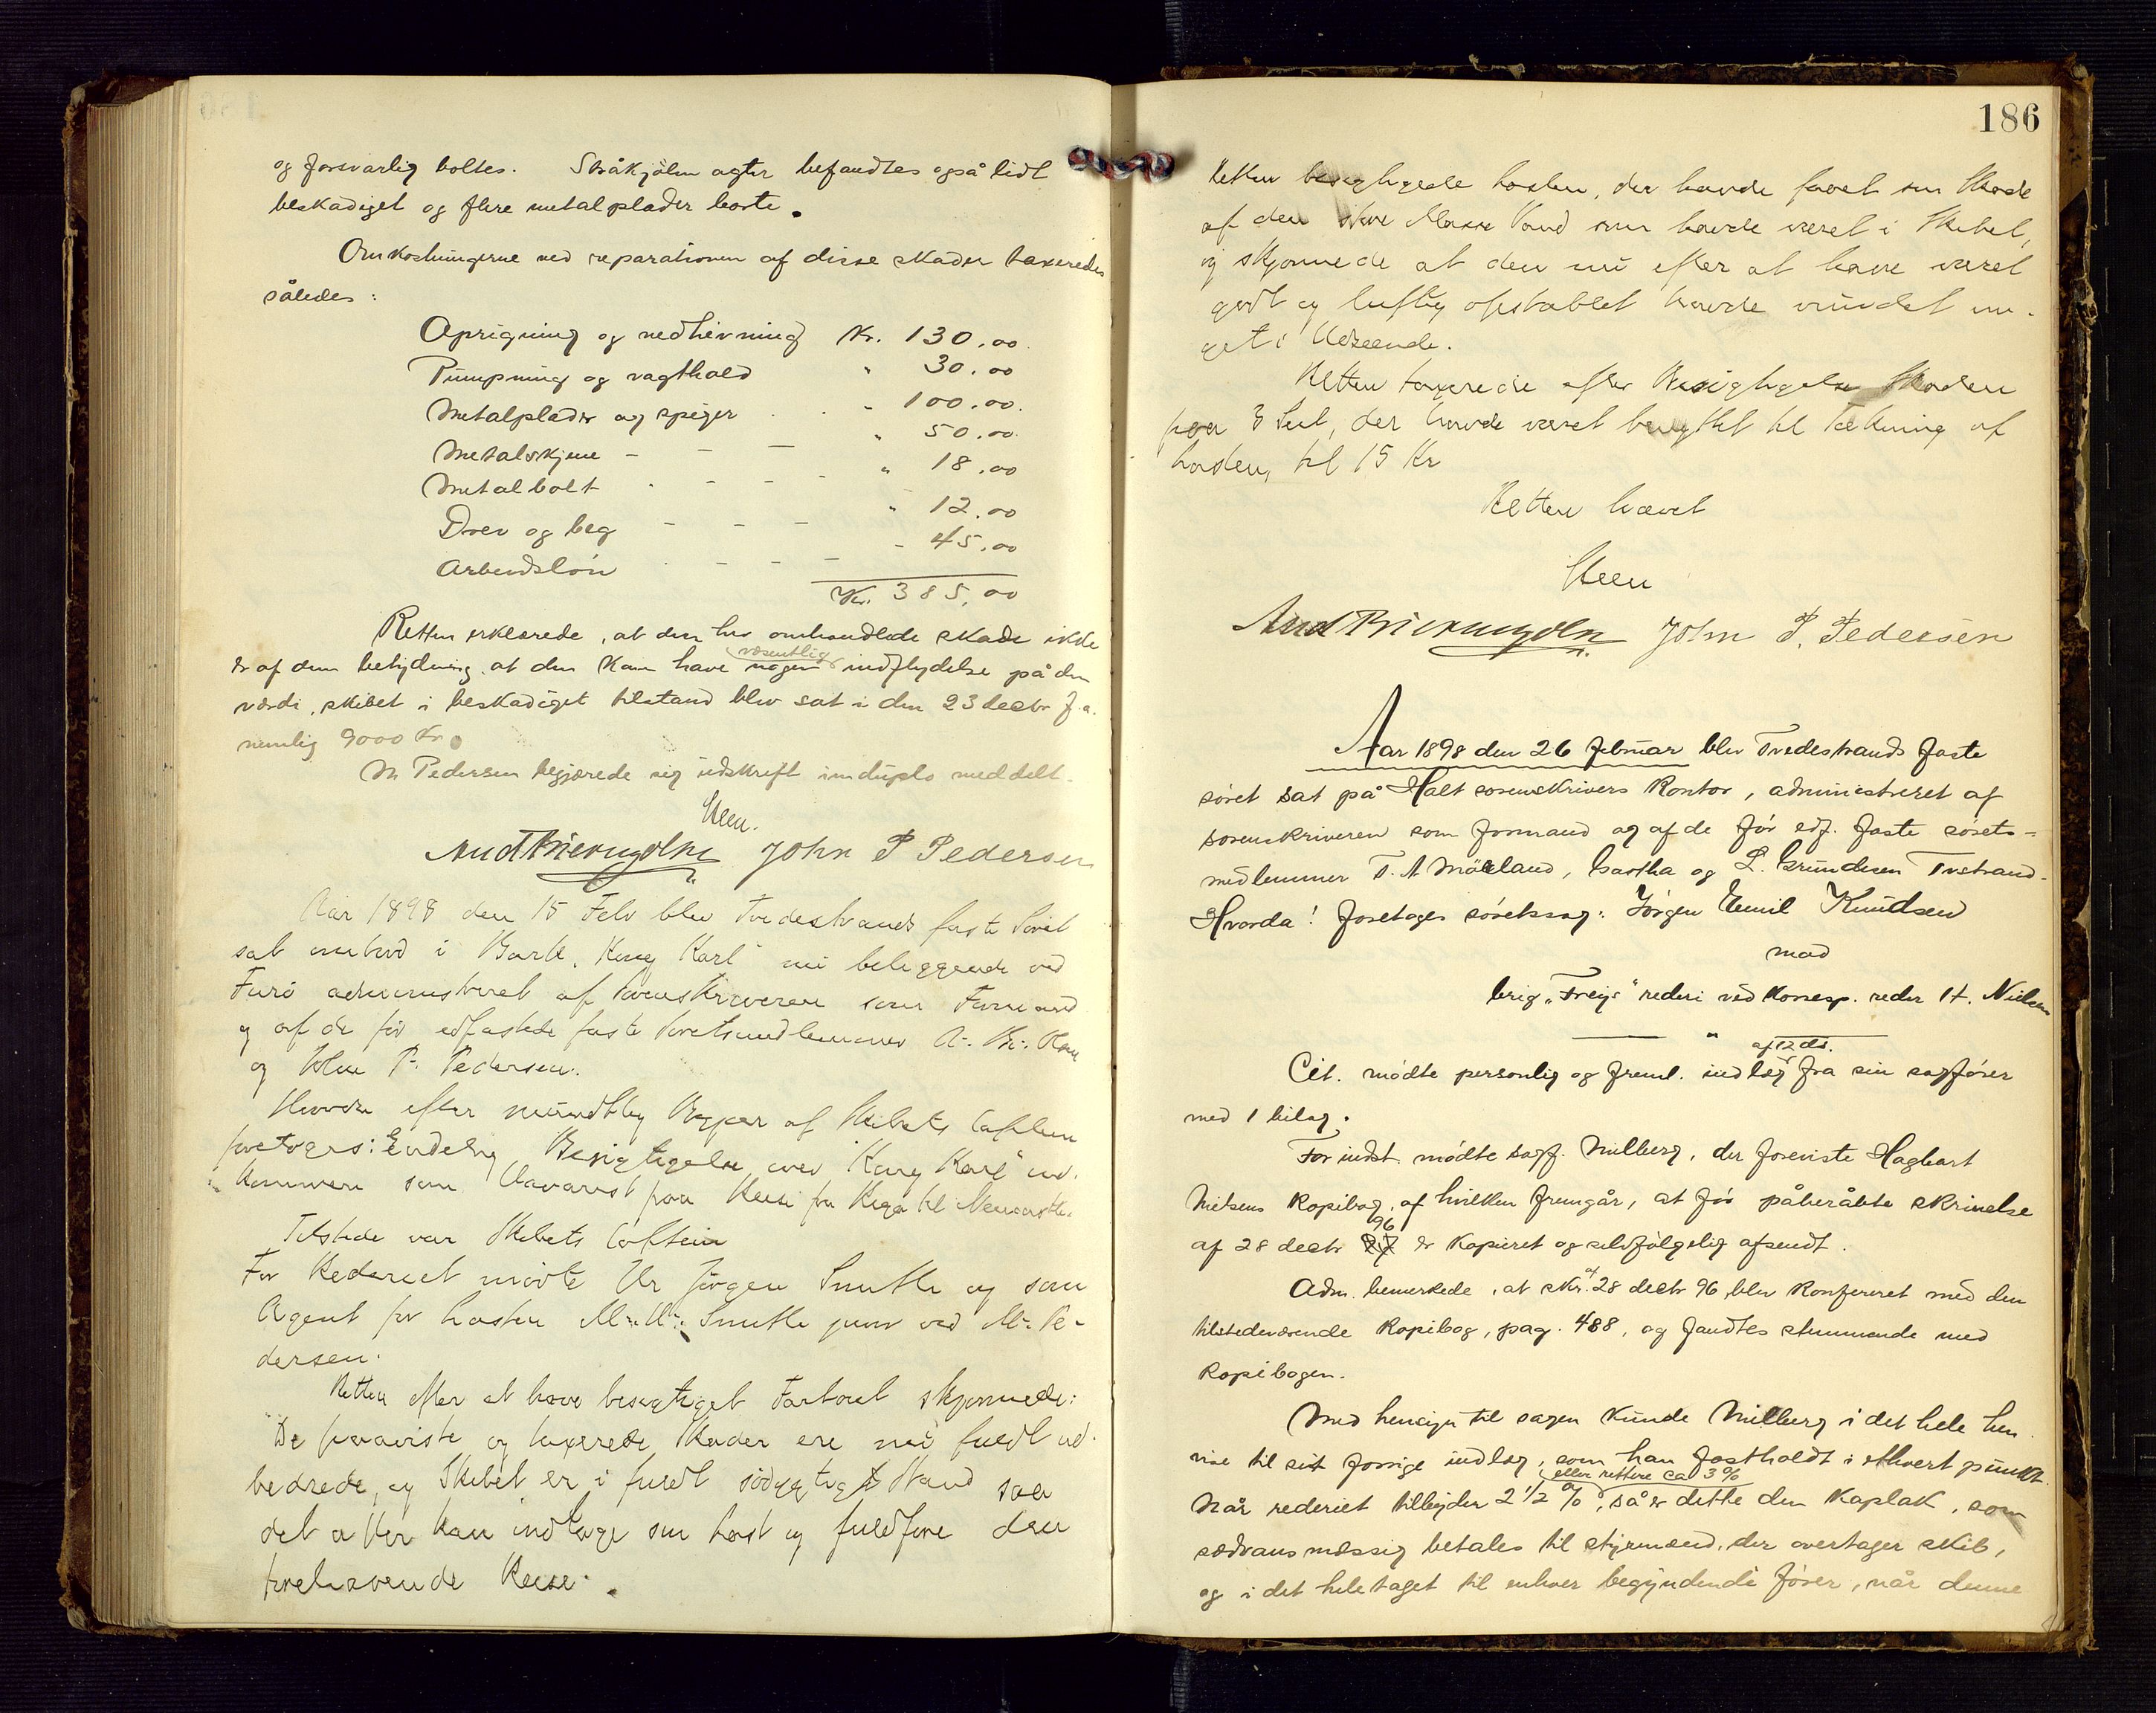 og forsvarlig boltes. Stråkjölen agter befandtes også lidt
beskadiget og flere metalplader borte.
Omkostningerne ved reparationen af disse skader taxeredes
således:
Oprigning og nedhivning Kr. 130.00
Pumpning og vagthold " 30.00
Metalplader og spiger . . " 100.00.
Metalskjene - - - " 50.00
Metalbolt . - - - " 18.00
Drev og beg - - - " 12.00
Arbeidslön . - - - - 45.00
Kr. 385,00
Retten erklærede, at den her omhandlede skade ikke
er af den betydning, at den kan have nogen væsentlig indflydelse på den
værdi, skibet i beskadiget tilstand blev sat i den 23 decbr f.a.
nemlig 9000 Kr.
M Pedersen begjærede sig udskrift in duplo meddelt.
Steen.
John P Pedersen
Aar 1898 den 15 Febr blev Tvedestrands faste Söret
sat ombord i Bark "Kong Karl" nu beliggende ved
Furö administreret af Sorenskriveren som Formand
og af de för edfæstede faste Söretsmedlemmer A. Br. Holm
og John P. Pedersen.
Hvorda efter mundtlig Begjær af Skibets Captein
foretoges: Endelig Besigtigelse over "Kong Karl" ind-
kommen som Havarist paa Reise fra Riga til Newcastle.
Tilstede var Skibets Captein
For Rederiet mödte Hr Jörgen Smith og som
Agent for Lasten M. Smith junr ved M. Pe-
dersen.
Retten efter at have besigtiget Fartöiet skjønnede:
De paaviste og taxerede Skader ere nu fuldt ud-
bedrede, og Skibet er i fuldt södygtigt Stand saa
det atter kan indtage sin Last og fuldføre den
forehavende Reise.
186
Retten besigtigede Lasten, der havde faaet sin Skade
af den store Masse Vand som havde været i Skibet,
og skjønnede at den nu efter at have været
godt og luftig opstablet havde vundet no-
get i Udseende.
Retten taxerede efter Besigtigelse Skaden
paa 3 Seil, der havde været benyttet til Tækning af
Lasten, til 15 Kr
Retten hævet
Steen
John P. Pedersen
Aar 1898 den 26 Februar blev Tvedestrands faste
söret sat på Holt sorenskrivers Kontor, administreret af
sorenskriveren som formand og af de för edf. faste sörets-
medlemmer T. A Möeland, Gartha og L. Gundesen Tvestrand.
Hvorda! foretoges söretssag: Jörgen Emil Knudsen
mod
brig "Freys" rederi ved Korresp. reder H. Nielsen
Cit. mödte personlig og freml. indlæg af 12 ds. fra sin sagförer
med 1 bilag.
For indst. mödte sagf. Milberg, der foreviste Hagbart
Nielsens Kopibog, af hvilken fremgår, at för påberåbte skrivelse
af 28 decbr 96 er Kopieret og selvfölgelig afsendt.
Adm. bemerkede, at skr. af 28 decbr 96 blev Konfereret med den
tilstedeværende Kopibog, pag. 488, og fandtes stemmende med
Kopibogen.
Med hensyn til sagen kunde Milberg i det hele hen-
vise til sit forrige indlæg, som han fastholdt i ethvert punkt.
Når rederiet tilbyder 2 1/2 % eller rettere ca 3 %, så er dette den Kaplak, som
sædvansmæssig betales til styrmænd, der overtager skib,
og i det hele taget til enhver begyndende förer, når denne